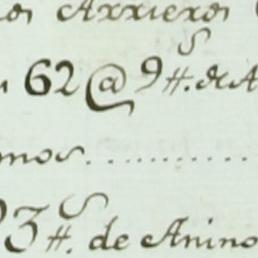 os Arrieros
62@9 #.s de A
mos..............
3 #.s de Anino